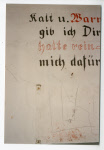 Kalt u. Warm
gib ich Dir
halte rein=
mich dafür